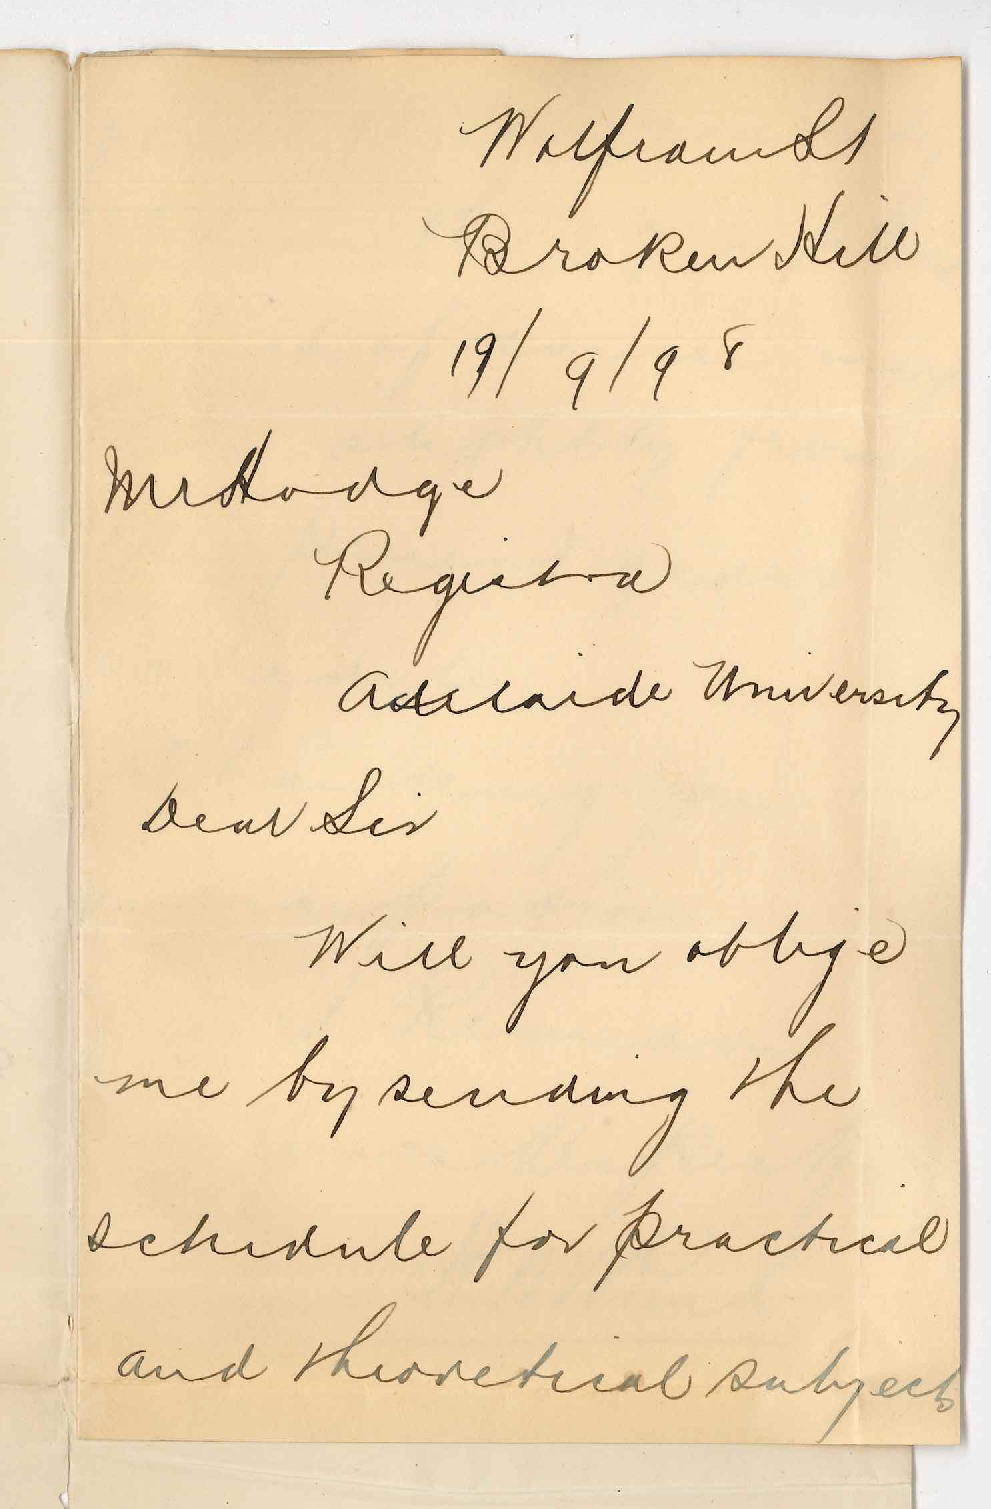 Wolfram St
Broken Hill
19/9/98
Mr Hodge
Registra
Adelaide University
Dear Sir
Will you oblige
me by sending the
schedule for practical
and theoretical subjects